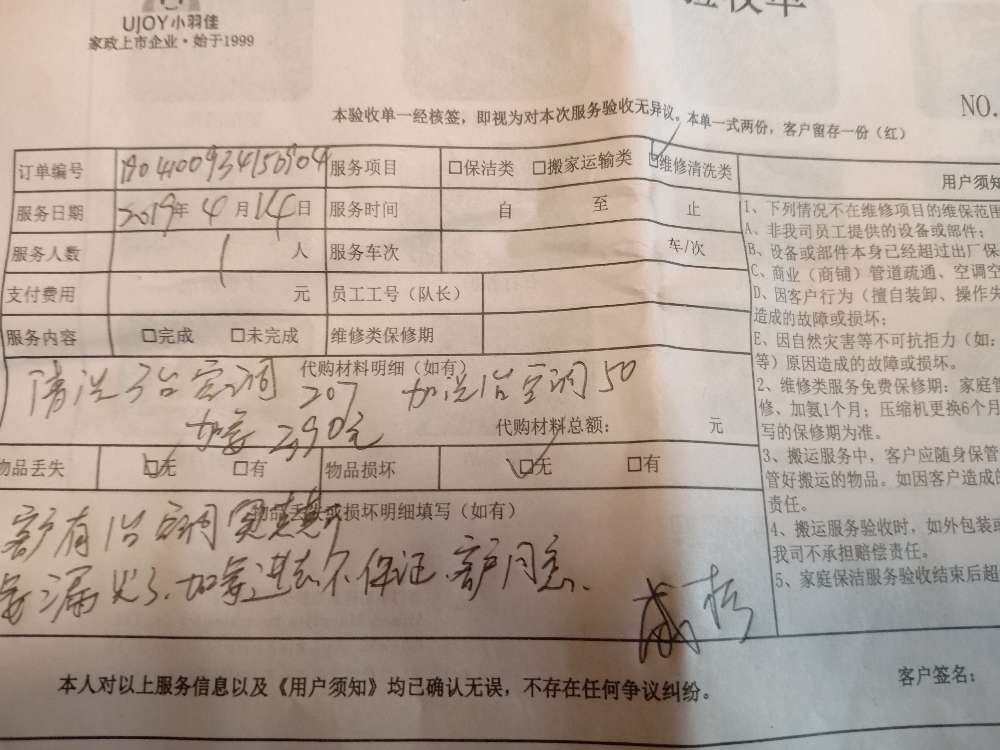 UJOY小羽佳
家政上市企业·始于1999
验收单
NO.
本验收单一经核签，即视为对本次服务验收无异议。本单一式两份，客户留存一份（红）
订单编号 服务项目 □保洁类 □搬家运输类 □维修清洗类
服务日期 2019年4月14日 服务时间 自 至 止
服务人数 1人 服务车次 车/次
支付费用 元 员工工号（队长）
服务内容 □完成 □未完成 维修类保修期
代购材料明细（如有）
清洗3台空调 207 加洗1台空调50
加氨 290元
代购材料总额： 元
物品丢失 □无 □有 物品损坏 □无 □有
物品丢失或损坏明细填写（如有）
客户有1台空调
漏 加 进去不保证 客户同意
本人对以上服务信息以及《用户须知》均已确认无误，不存在任何争议纠纷。
客户签名：
用户须知
1、下列情况不在维修项目的维保范围
A、非我司员工提供的设备或部件；
B、设备或部件本身已经超过出厂保
C、商业（商铺）管道疏通、空调空
D、因客户行为（擅自装卸、操作失
造成的故障或损坏；
E、因自然灾害等不可抗拒力（如：
等）原因造成的故障或损坏。
2、维修类服务免费保修期：家庭管
修、加氨1个月；压缩机更换6个月
写的保修期为准。
3、搬运服务中，客户应随身保管
管好搬运的物品。如因客户造成的
责任。
4、搬运服务验收时，如外包装或
我司不承担赔偿责任。
5、家庭保洁服务验收结束后超